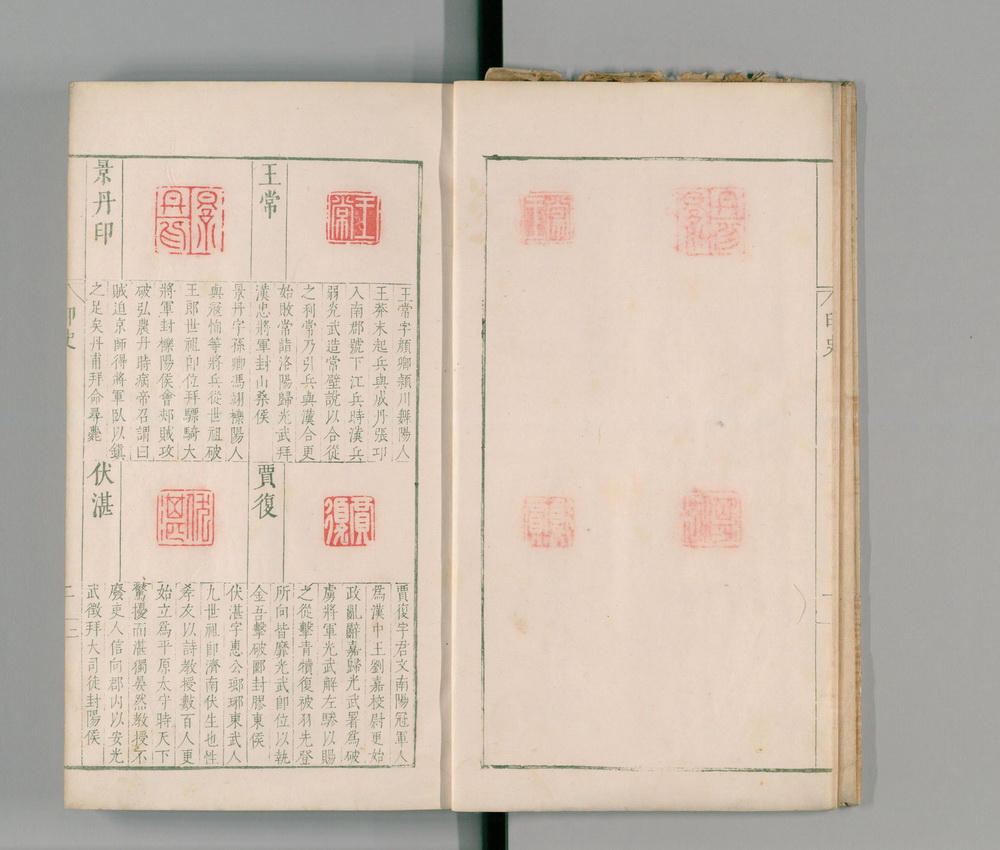 王常
王常
王常字顏卿潁川舞陽人
王莽末起兵與成丹張卭
入南郡號下江兵時漢兵
弱光武造常壁說以合從
之利常乃引兵與漢合更
始敗常詣洛陽歸光武拜
漢忠將軍封山桑侯
景丹印
景丹印
景丹字孫卿馮翊櫟陽人
與寇恂等將兵從世祖破
王郎世祖卽位拜驃騎大
將軍封櫟陽侯會郟賊攻
破弘農丹時病帝召謂曰
賊迫京師得將軍臥以鎮
之足矣丹甫拜命尋薨
賈復
賈復
賈復字君文南陽冠軍人
爲漢中王劉嘉校尉更始
政亂辭嘉歸光武署爲破
虜將軍光武解左驂以賜
之從擊青犢復被羽先登
所向皆靡光武卽位以執
金吾擊破郾封膠東侯
伏湛
伏湛
伏湛字惠公瑯琊東武人
九世祖卽濟南伏生也性
孝友以詩教授數百人更
始立爲平原太守時天下
驚擾而湛獨晏然教授不
廢吏人信向郡內以安光
武徵拜大司徒封陽侯
印史
二
三
印史